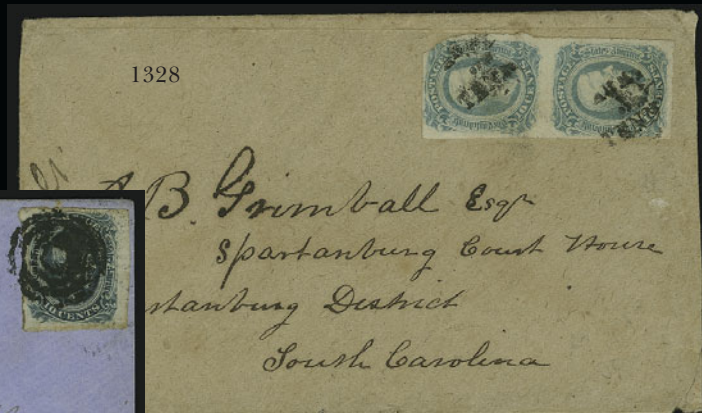 1328
B. Grimball Esqr
Spartanburg Court House
rtanburg District
South Carolina
10 CENTS